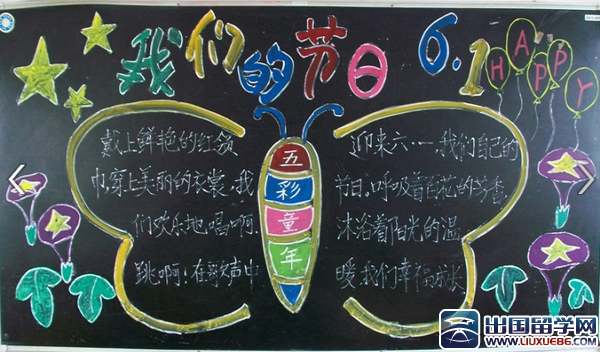 我们的节日 6.1
HAPPY
戴上鲜艳的红领
巾,穿上美丽的衣裳,我
们欢乐地唱啊.
跳啊!在歌声中
五
彩
童
年
迎来六·一,我们自己的
节日,呼吸着百花的芳香
沐浴着阳光的温
暖,我们幸福成长
出国留学网
WWW.LIUXUE86.COM